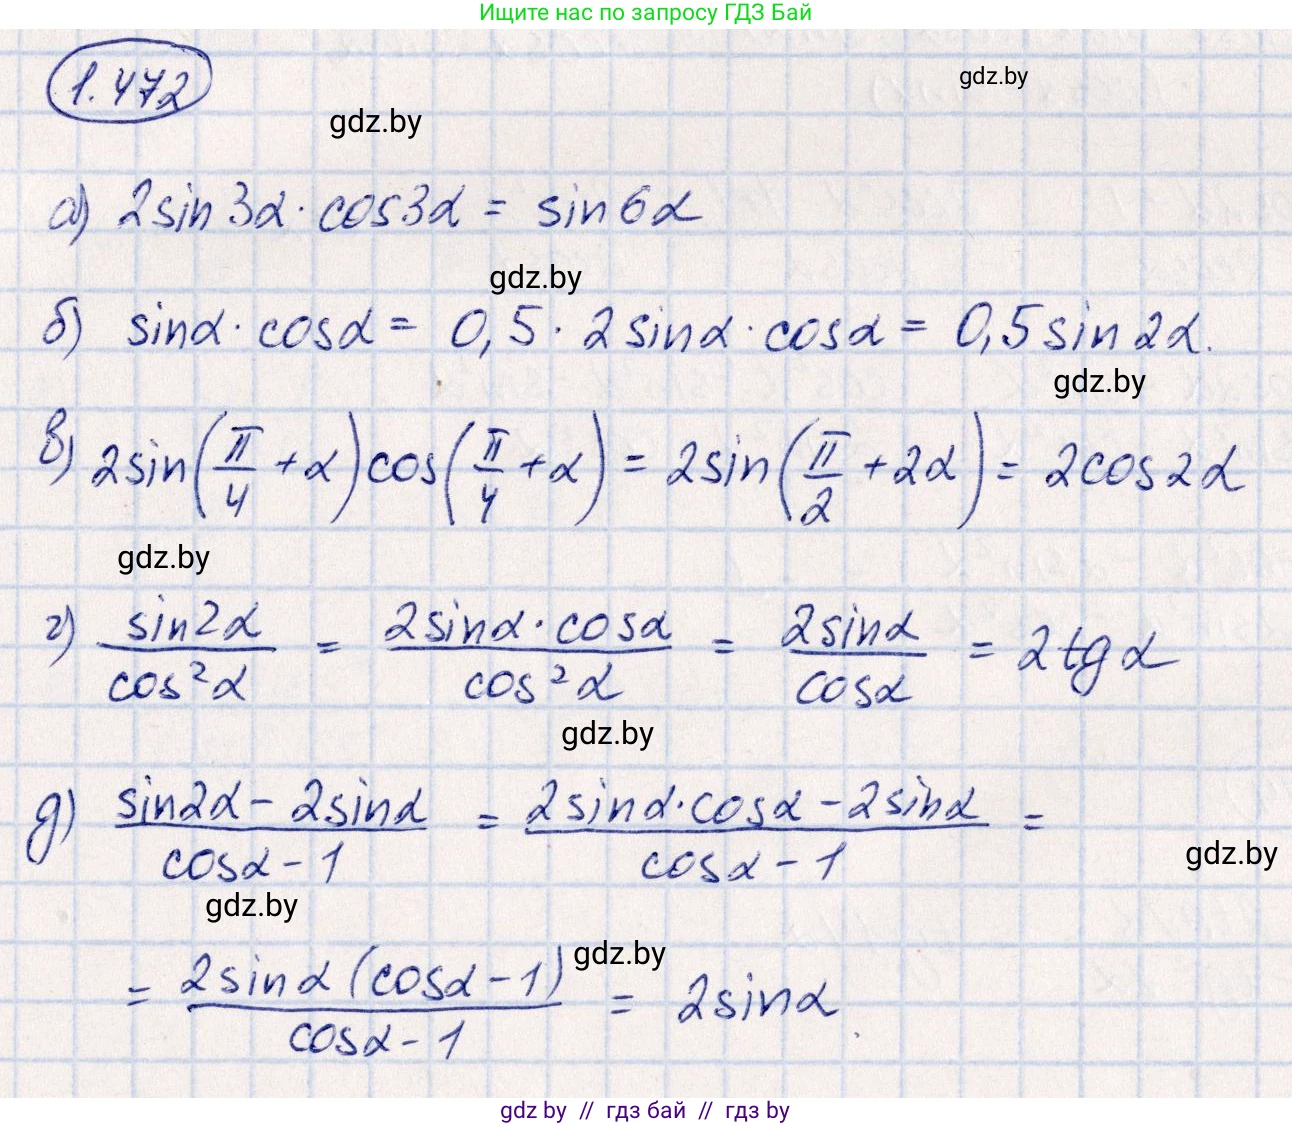 Ищите нас по запросу ГДЗ Бай
1.472
gdz.by
gdz.by
а) 2sin3α · cos3α = sin6α
gdz.by
б) sinα · cosα = 0,5 · 2sinα · cosα = 0,5sin2α.
gdz.by
в) 2sin(π/4 + α)cos(π/4 + α) = 2sin(π/2 + 2α) = 2cos2α
gdz.by
г) sin2α/cos²α = 2sinα·cosα/cos²α = 2sinα/cosα = 2tgα
gdz.by
д) (sin2α - 2sinα)/(cosα - 1) = (2sinα·cosα - 2sinα)/(cosα - 1) =
gdz.by
gdz.by
gdz.by
= 2sinα(cosα - 1)/(cosα - 1) = 2sinα.
gdz by // гдз бай // гдз by